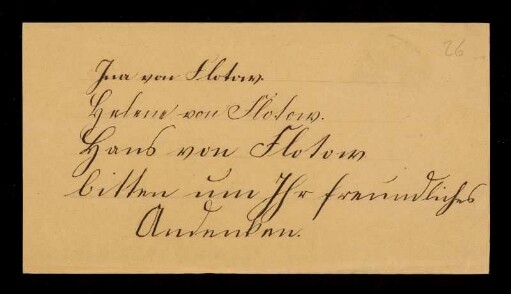 26
Ina von Flotow.
Helene von Flotow.
Hans von Flotow
bitten um Ihr freundliches
Andenken.